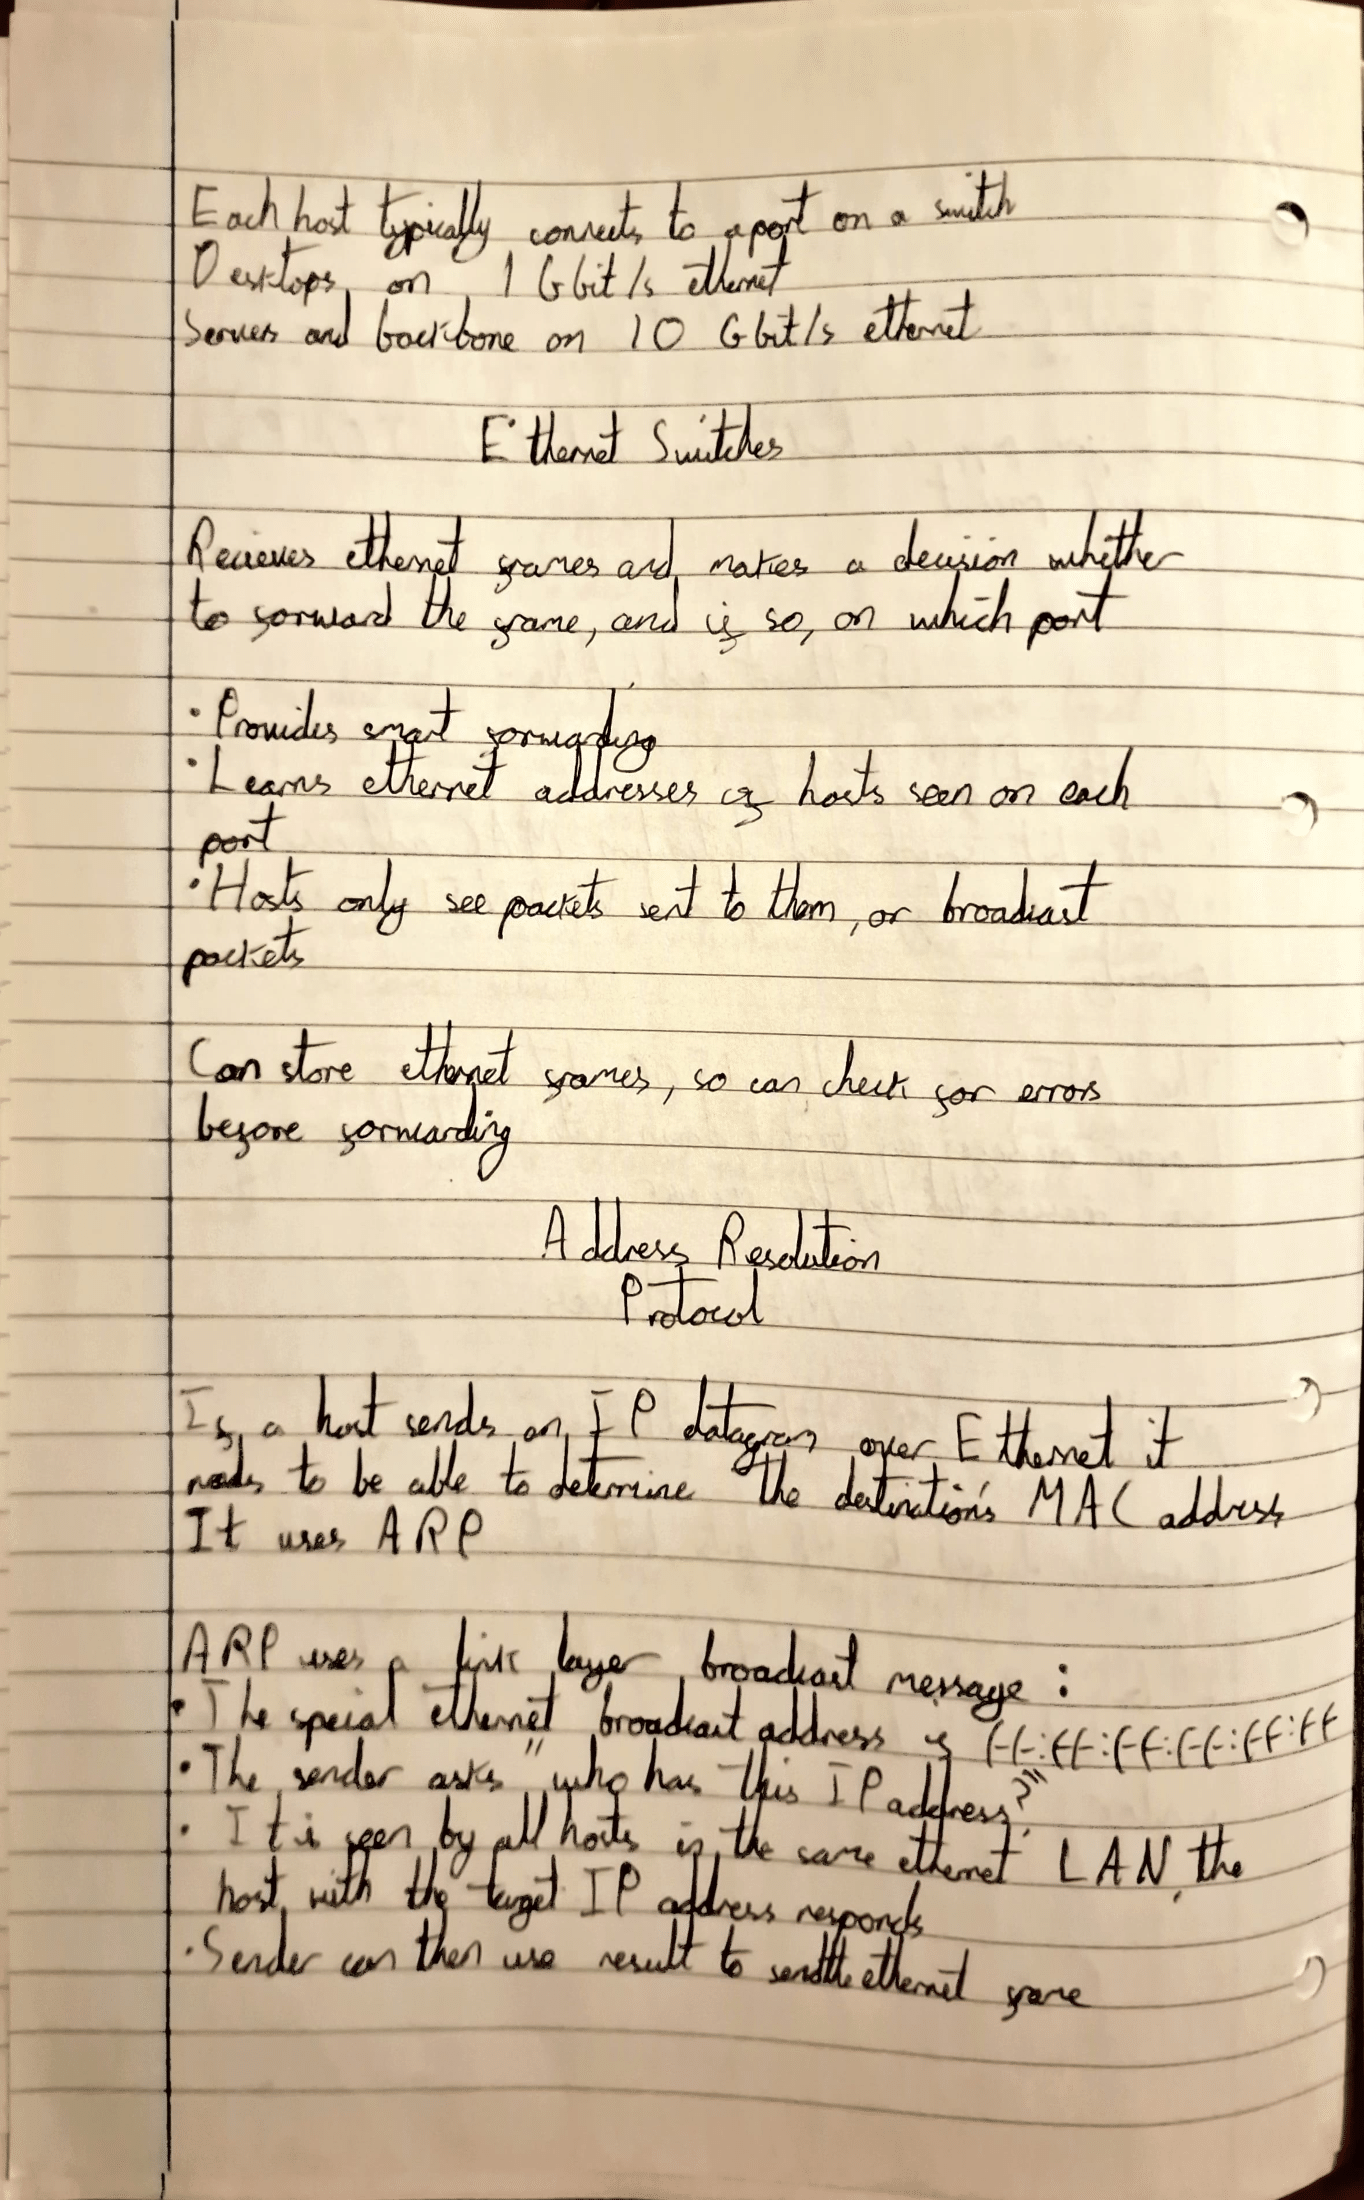 Each host typically connects to a port on a switch
Desktops on 1 Gbit/s ethernet
Servers and backbone on 10 Gbit/s ethernet
Ethernet Switches
Recieves ethernet frames and makes a decision whether
to forward the frame, and if so, on which port
• Provides smart forwarding
• Learns ethernet addresses of hosts seen on each
port
• Hosts only see packets sent to them, or broadcast
packets
Can store ethernet frames, so can check for errors
before forwarding
Address Resolution
Protocol
If a host sends an IP datagram over Ethernet it
needs to be able to determine the destination's MAC address
It uses ARP
ARP uses a link layer broadcast message :
• The special ethernet broadcast address is ff:ff:ff:ff:ff:ff
• The sender asks "who has this IP address?"
• It is seen by all hosts in the same ethernet LAN, the
host with the target IP address responds
• Sender can then use result to send the ethernet frame